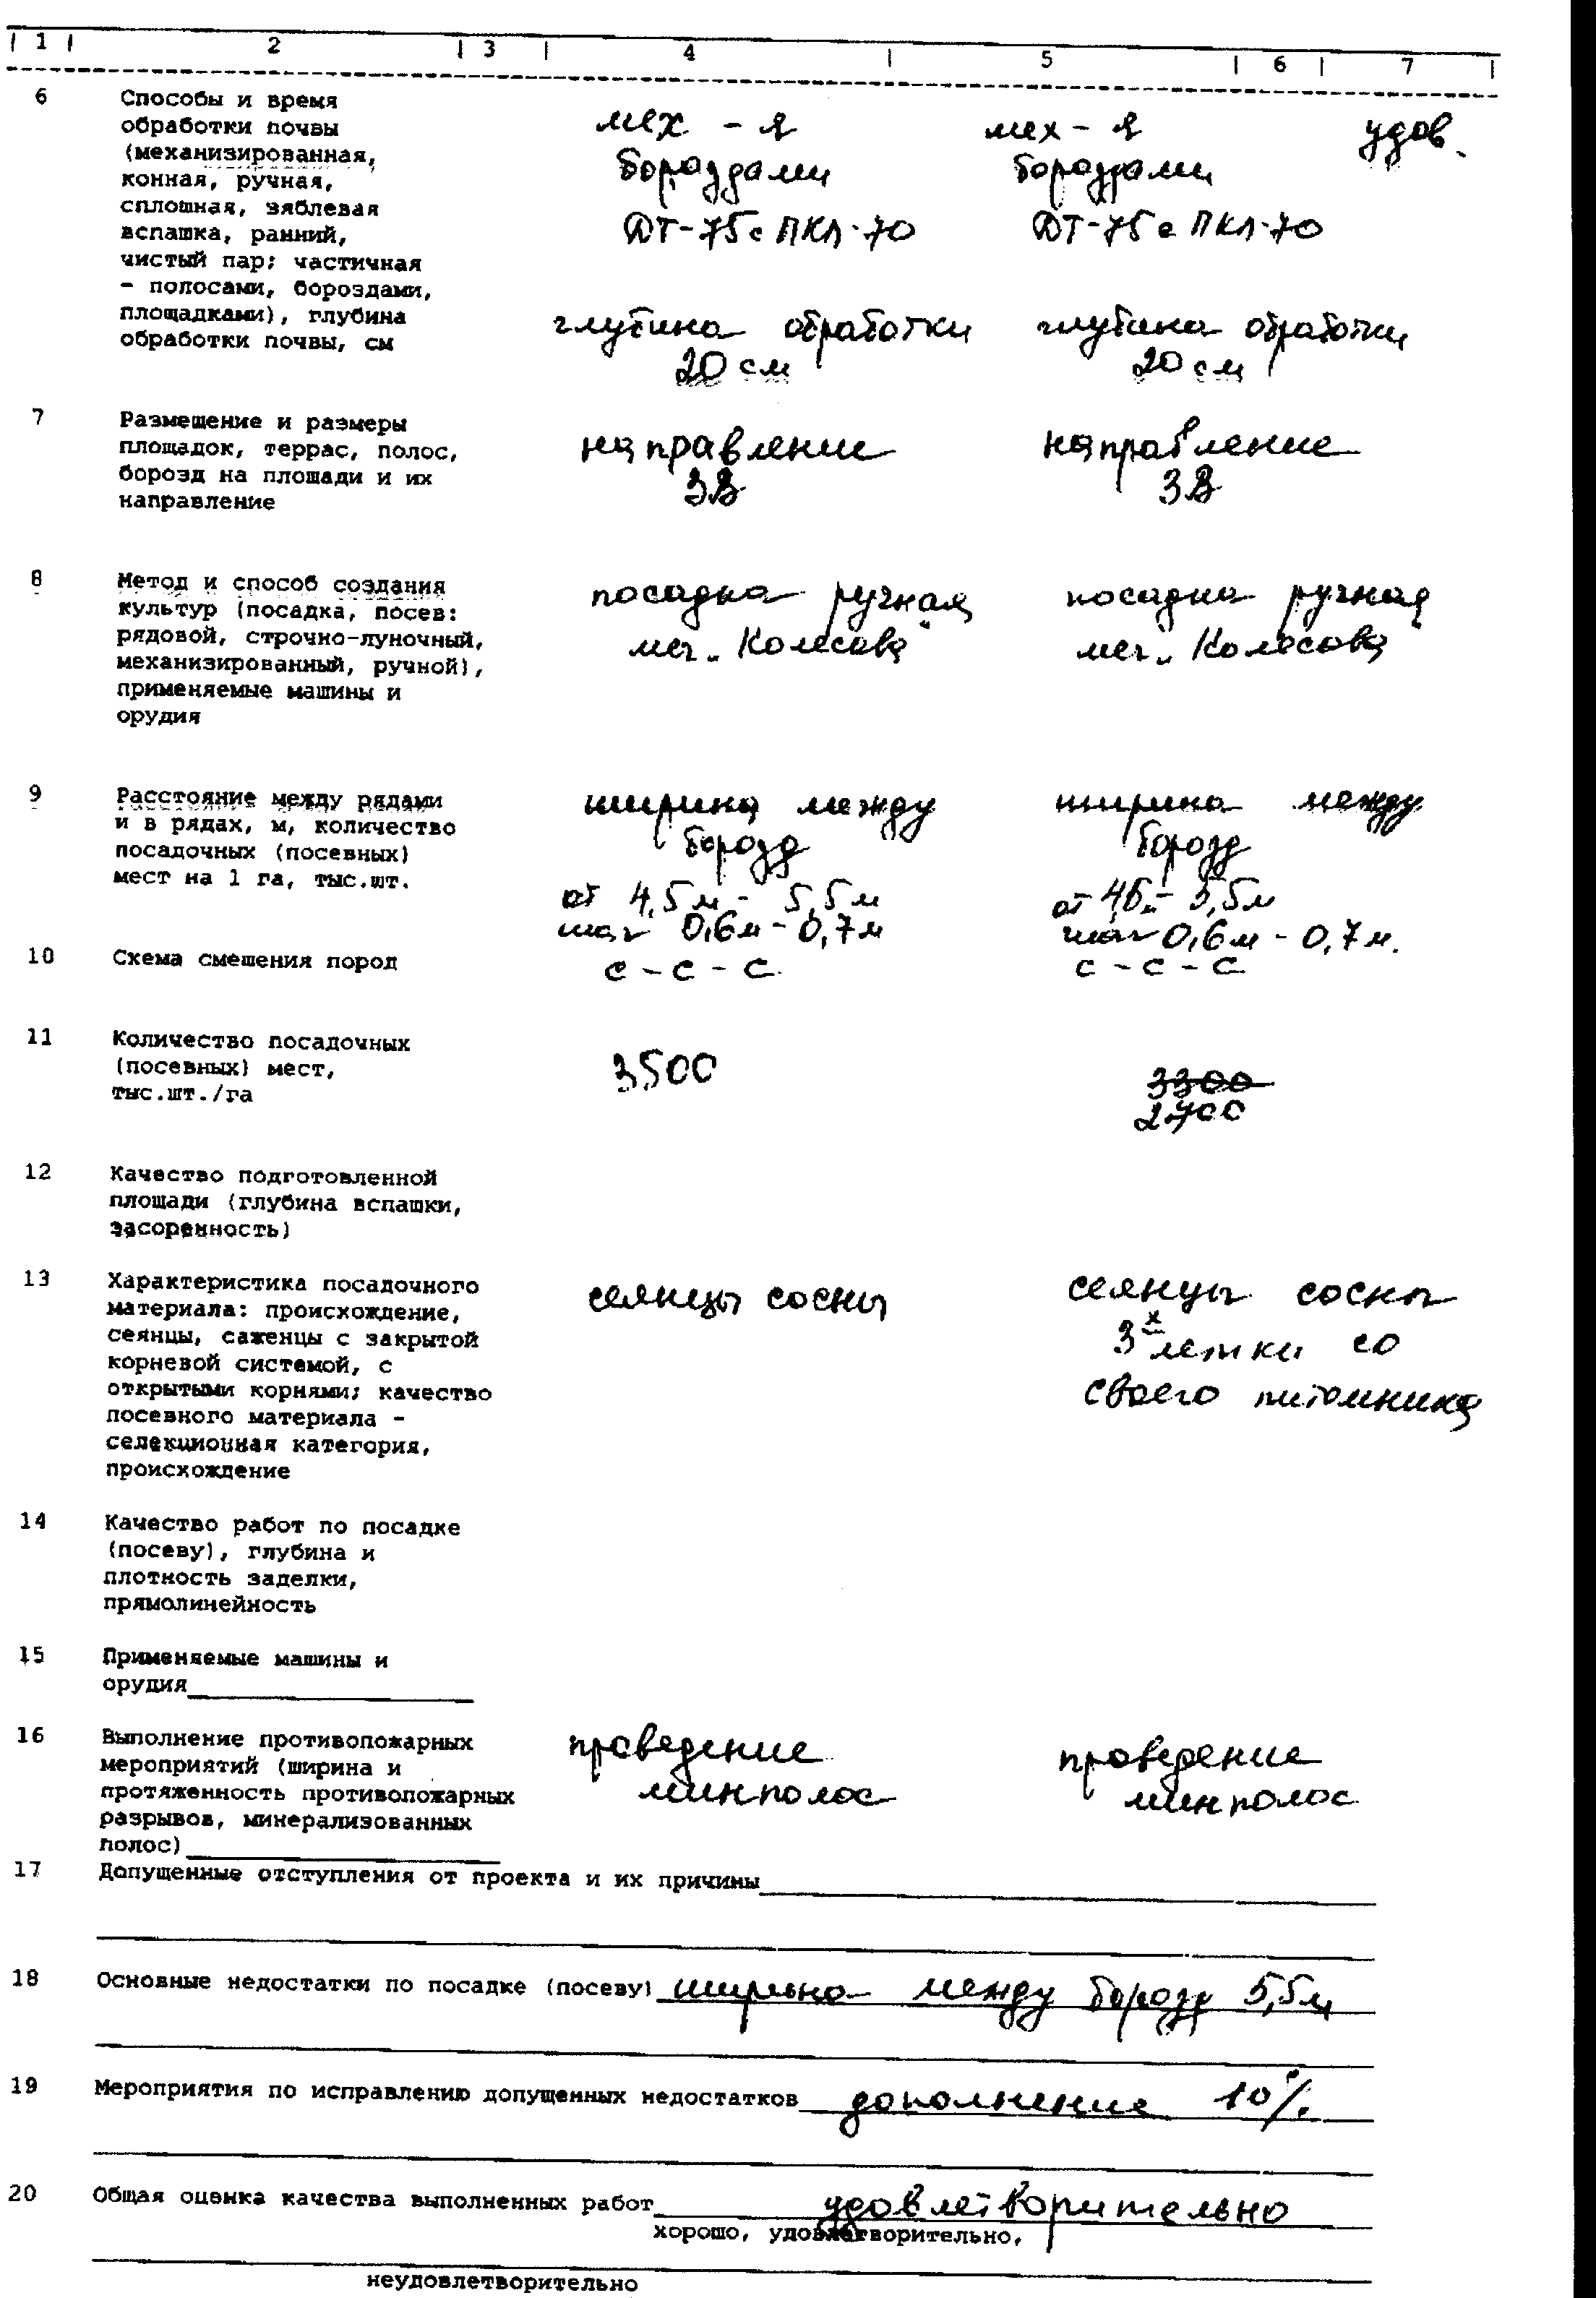 | 1 | 2 | 3 | 4 | 5 | 6 | 7 |
6 Способы и время
обработки почвы мех - я мех - я удов.
(механизированная, бороздами бороздами
конная, ручная,
сплошная, зяблевая ДТ-75 с ПКЛ-70 ДТ-75 с ПКЛ-70
вспашка, ранний,
чистый пар; частичная
- полосами, бороздами,
площадками), глубина глубина обработки глубина обработки
обработки почвы, см 20 см 20 см
7 Размещение и размеры
площадок, террас, полос, направление направление
борозд на площади и их ЗВ ЗВ
направление
8 Метод и способ создания посадка ручная посадка ручная
культур (посадка, посев:
рядовой, строчно-луночный, меч „Колесова" меч „Колесова"
механизированный, ручной),
применяемые машины и
орудия
9 Расстояние между рядами ширина между ширина между
и в рядах, м, количество борозд борозд
посадочных (посевных)
мест на 1 га, тыс.шт. от 4,5м - 5,5м от 4,5м - 5,5м
шаг 0,6м - 0,7м шаг 0,6м - 0,7м.
10 Схема смешения пород с - с - с с - с - с
11 Количество посадочных
(посевных) мест, 3500 3300
тыс.шт./га 2700
12 Качество подготовленной
площади (глубина вспашки,
засоренность)
13 Характеристика посадочного сеянцы сосны сеянцы сосны
материала: происхождение,
сеянцы, саженцы с закрытой 3х летки со
корневой системой, с
открытыми корнями; качество своего питомника
посевного материала -
селекционная категория,
происхождение
14 Качество работ по посадке
(посеву), глубина и
плотность заделки,
прямолинейность
15 Применяемые машины и
орудия
16 Выполнение противопожарных проведение проведение
мероприятий (ширина и минполос минполос
протяженность противопожарных
разрывов, минерализованных
полос)
17 Допущенные отступления от проекта и их причины
18 Основные недостатки по посадке (посеву) ширина между борозд 5,5м
19 Мероприятия по исправлению допущенных недостатков дополнение 10%
20 Общая оценка качества выполненных работ удовлетворительно
хорошо, удовлетворительно,
неудовлетворительно